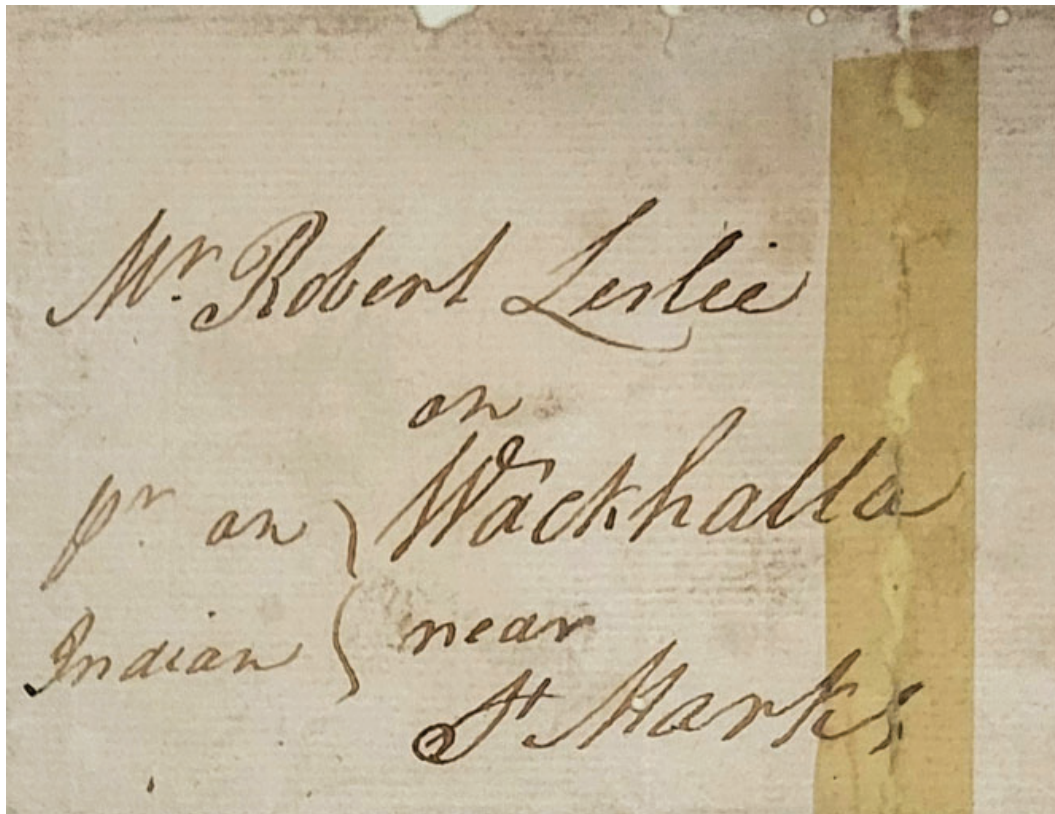 Mr. Robert Leslie
on
Wackhalla
pr an
Indian
near
St Marks